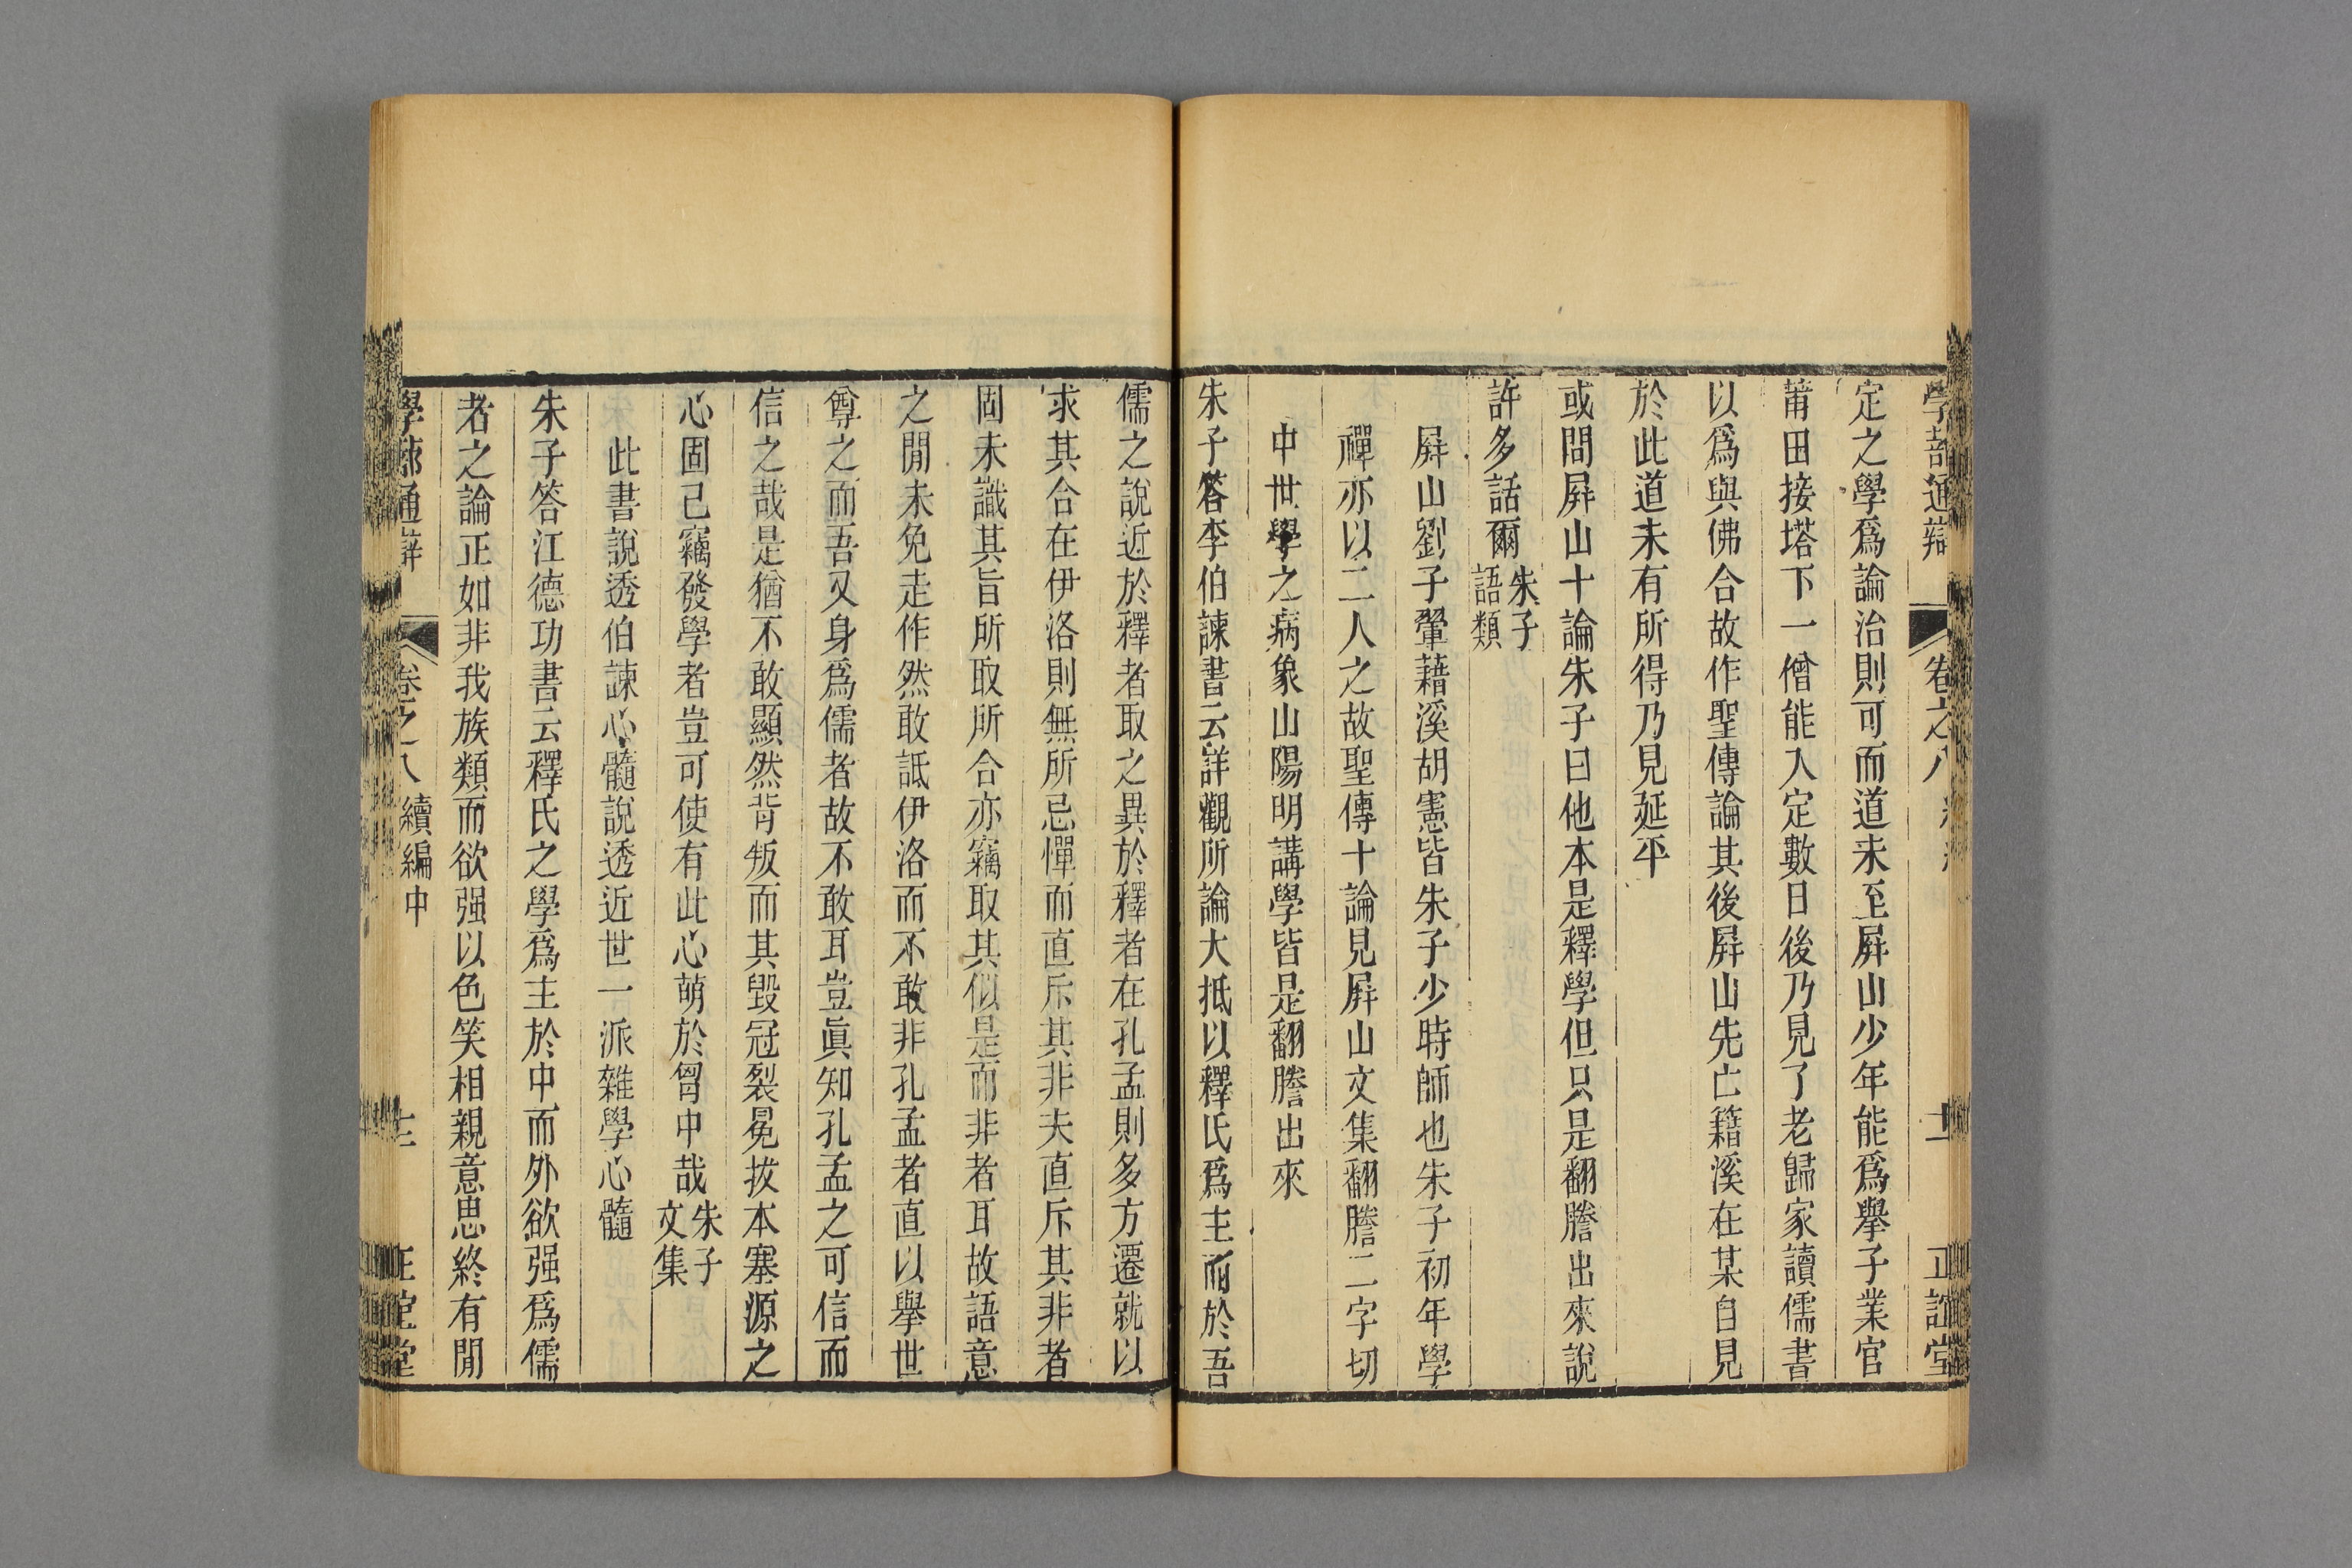 學蔀通辯 卷之八 正誼堂
定之學爲論治則可而道未至屛山少年能爲舉子業官
莆田接塔下一僧能入定數日後乃見了老歸家讀儒書
以爲與佛合故作聖傳論其後屛山先亡籍溪在某自見
於此道未有所得乃見延平
或問屛山十論朱子曰他本是釋學但只是翻謄出來說
許多話爾朱子語類
屛山劉子翬藉溪胡憲皆朱子少時師也朱子初年學
禪亦以二人之故聖傳十論見屛山文集翻謄二字切
中世學之病象山陽明講學皆是翻謄出來
朱子答李伯諫書云詳觀所論大抵以釋氏爲主而於吾
儒之說近於釋者取之異於釋者在孔孟則多方遷就以
求其合在伊洛則無所忌憚而直斥其非夫直斥其非者
固未識其旨所取所合亦竊取其似是而非者耳故語意
之閒未免走作然敢詆伊洛而不敢非孔孟者直以舉世
尊之而吾又身爲儒者故不敢耳豈眞知孔孟之可信而
信之哉是猶不敢顯然背叛而其毀冠裂冕拔本塞源之
心固已竊發學者豈可使有此心萌於胷中哉朱子文集
此書說透伯諫心髓說透近世一派雜學心髓
朱子答江德功書云釋氏之學爲主於中而外欲强爲儒
者之論正如非我族類而欲强以色笑相親意思終有閒
學蔀通辯 卷之八 續編中 正誼堂